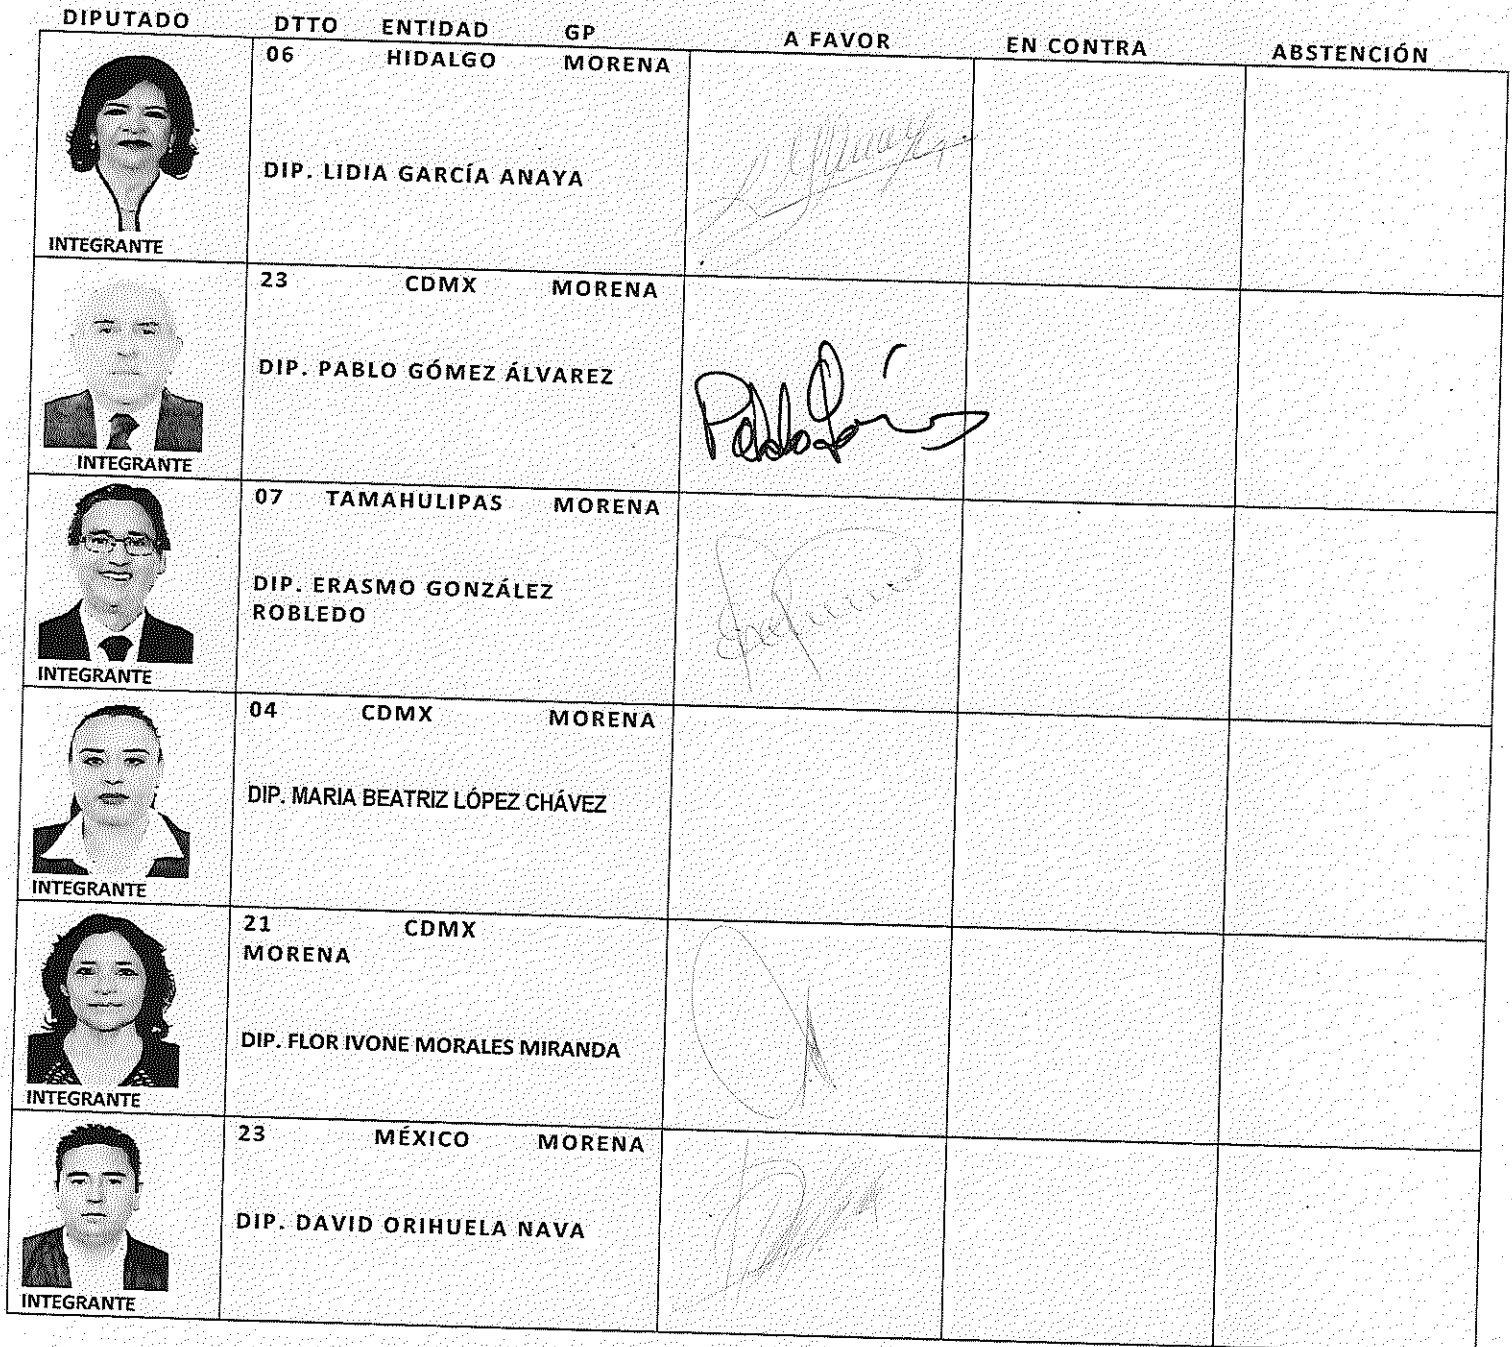 DIPUTADO DTTO ENTIDAD GP A FAVOR EN CONTRA ABSTENCIÓN
06 HIDALGO MORENA
DIP. LIDIA GARCÍA ANAYA
INTEGRANTE
23 CDMX MORENA
DIP. PABLO GÓMEZ ÁLVAREZ
Pablo Gómez
INTEGRANTE
07 TAMAHULIPAS MORENA
DIP. ERASMO GONZÁLEZ
ROBLEDO
INTEGRANTE
04 CDMX MORENA
DIP. MARIA BEATRIZ LÓPEZ CHÁVEZ
INTEGRANTE
21 CDMX
MORENA
DIP. FLOR IVONE MORALES MIRANDA
INTEGRANTE
23 MÉXICO MORENA
DIP. DAVID ORIHUELA NAVA
INTEGRANTE